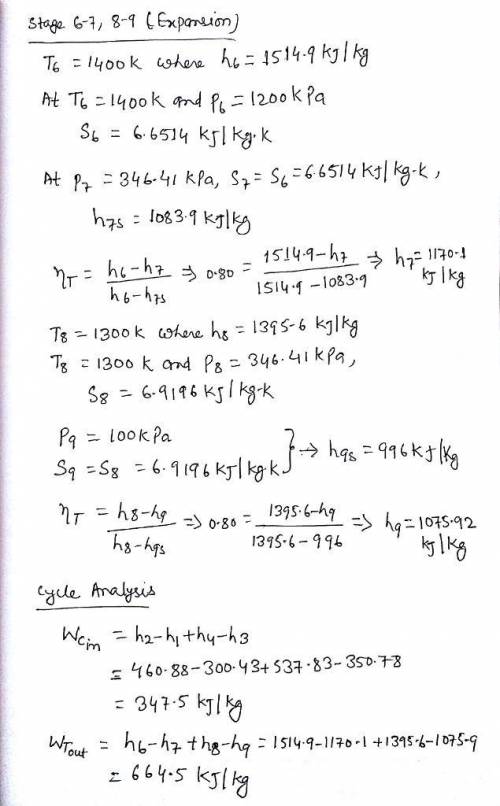 Stage 6-7, 8-9 (Expansion)
T6 = 1400k where h6 = 1514.9 kJ/kg
At T6 = 1400k and P6 = 1200kPa
S6 = 6.6514 kJ/kg.k
At P7 = 346.41 kPa, S7 = S6 = 6.6514 kJ/kg-k,
h7s = 1083.9 kJ/kg
ηT = (h6-h7)/(h6-h7s) ⇒ 0.80 = (1514.9-h7)/(1514.9-1083.9) ⇒ h7 = 1170.1 kJ/kg
T8 = 1300k where h8 = 1395.6 kJ/kg
T8 = 1300k and P8 = 346.41kPa,
S8 = 6.9196 kJ/kg-k
P9 = 100kPa
S9 = S8 = 6.9196 kJ/kg.k } → h9s = 996kJ/kg
ηT = (h8-h9)/(h8-h9s) ⇒ 0.80 = (1395.6-h9)/(1395.6-996) ⇒ h9 = 1075.92 kJ/kg
Cycle Analysis
WCin = h2-h1+h4-h3
= 460.88-300.43+537.83-350.78
= 347.5 kJ/kg
WTout = h6-h7+h8-h9 = 1514.9-1170.1+1395.6-1075.9
= 664.5 kJ/kg